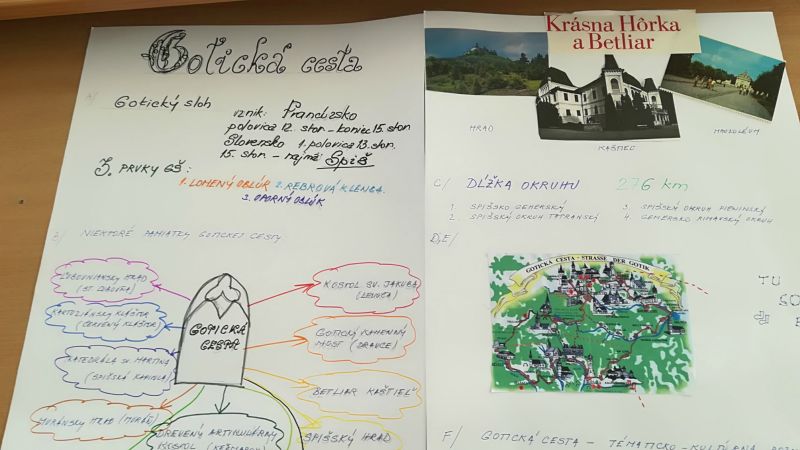 Gotická cesta
A/
Gotický sloh
vznik: Francúzsko
polovica 12. stor. - koniec 15. stor.
Slovensko 1. polovica 13. stor.
15. stor. - najmä Spiš
3. PRVKY GŠ:
1. LOMENÝ OBLÚK 2. REBROVÁ KLENBA
3. OPORNÝ OBLÚK
B/ NIEKTORÉ PAMIATKY GOTICKEJ CESTY
ĽUBOVNIANSKY HRAD
(ST. ĽUBOVŇA)
KARTUZIÁNSKY KLÁŠTOR
(ČERVENÝ KLÁŠTOR)
KATEDRÁLA SV. MARTINA
(SPIŠSKÁ KAPITULA)
MURÁNSKY HRAD (MURÁŇ)
DREVENÝ ARTIKULÁRNY
KOSTOL (KEŽMAROK)
GOTICKÁ
CESTA
KOSTOL SV. JAKUBA
(LEVOČA)
GOTICKÝ KAMENNÝ
MOST (DRAVCE)
BETLIAR KAŠTIEĽ
SPIŠSKÝ HRAD
Krásna Hôrka
a Betliar
HRAD
KAŠTIEĽ
MAUZÓLEUM
C/ DĹŽKA OKRUHU 276 km
1 SPIŠSKO GEMERSKÝ
2. SPIŠSKÝ OKRUH TATRANSKÝ
3. SPIŠSKÝ OKRUH PIENINSKÝ
4. GEMERSKO RIMAVSKÝ OKRUH
D,E/
GOTICKÁ CESTA - STRASSE DER GOTIK
TU
SO
F/ GOTICKÁ CESTA - TÉMATICKO - KULTÚRNA